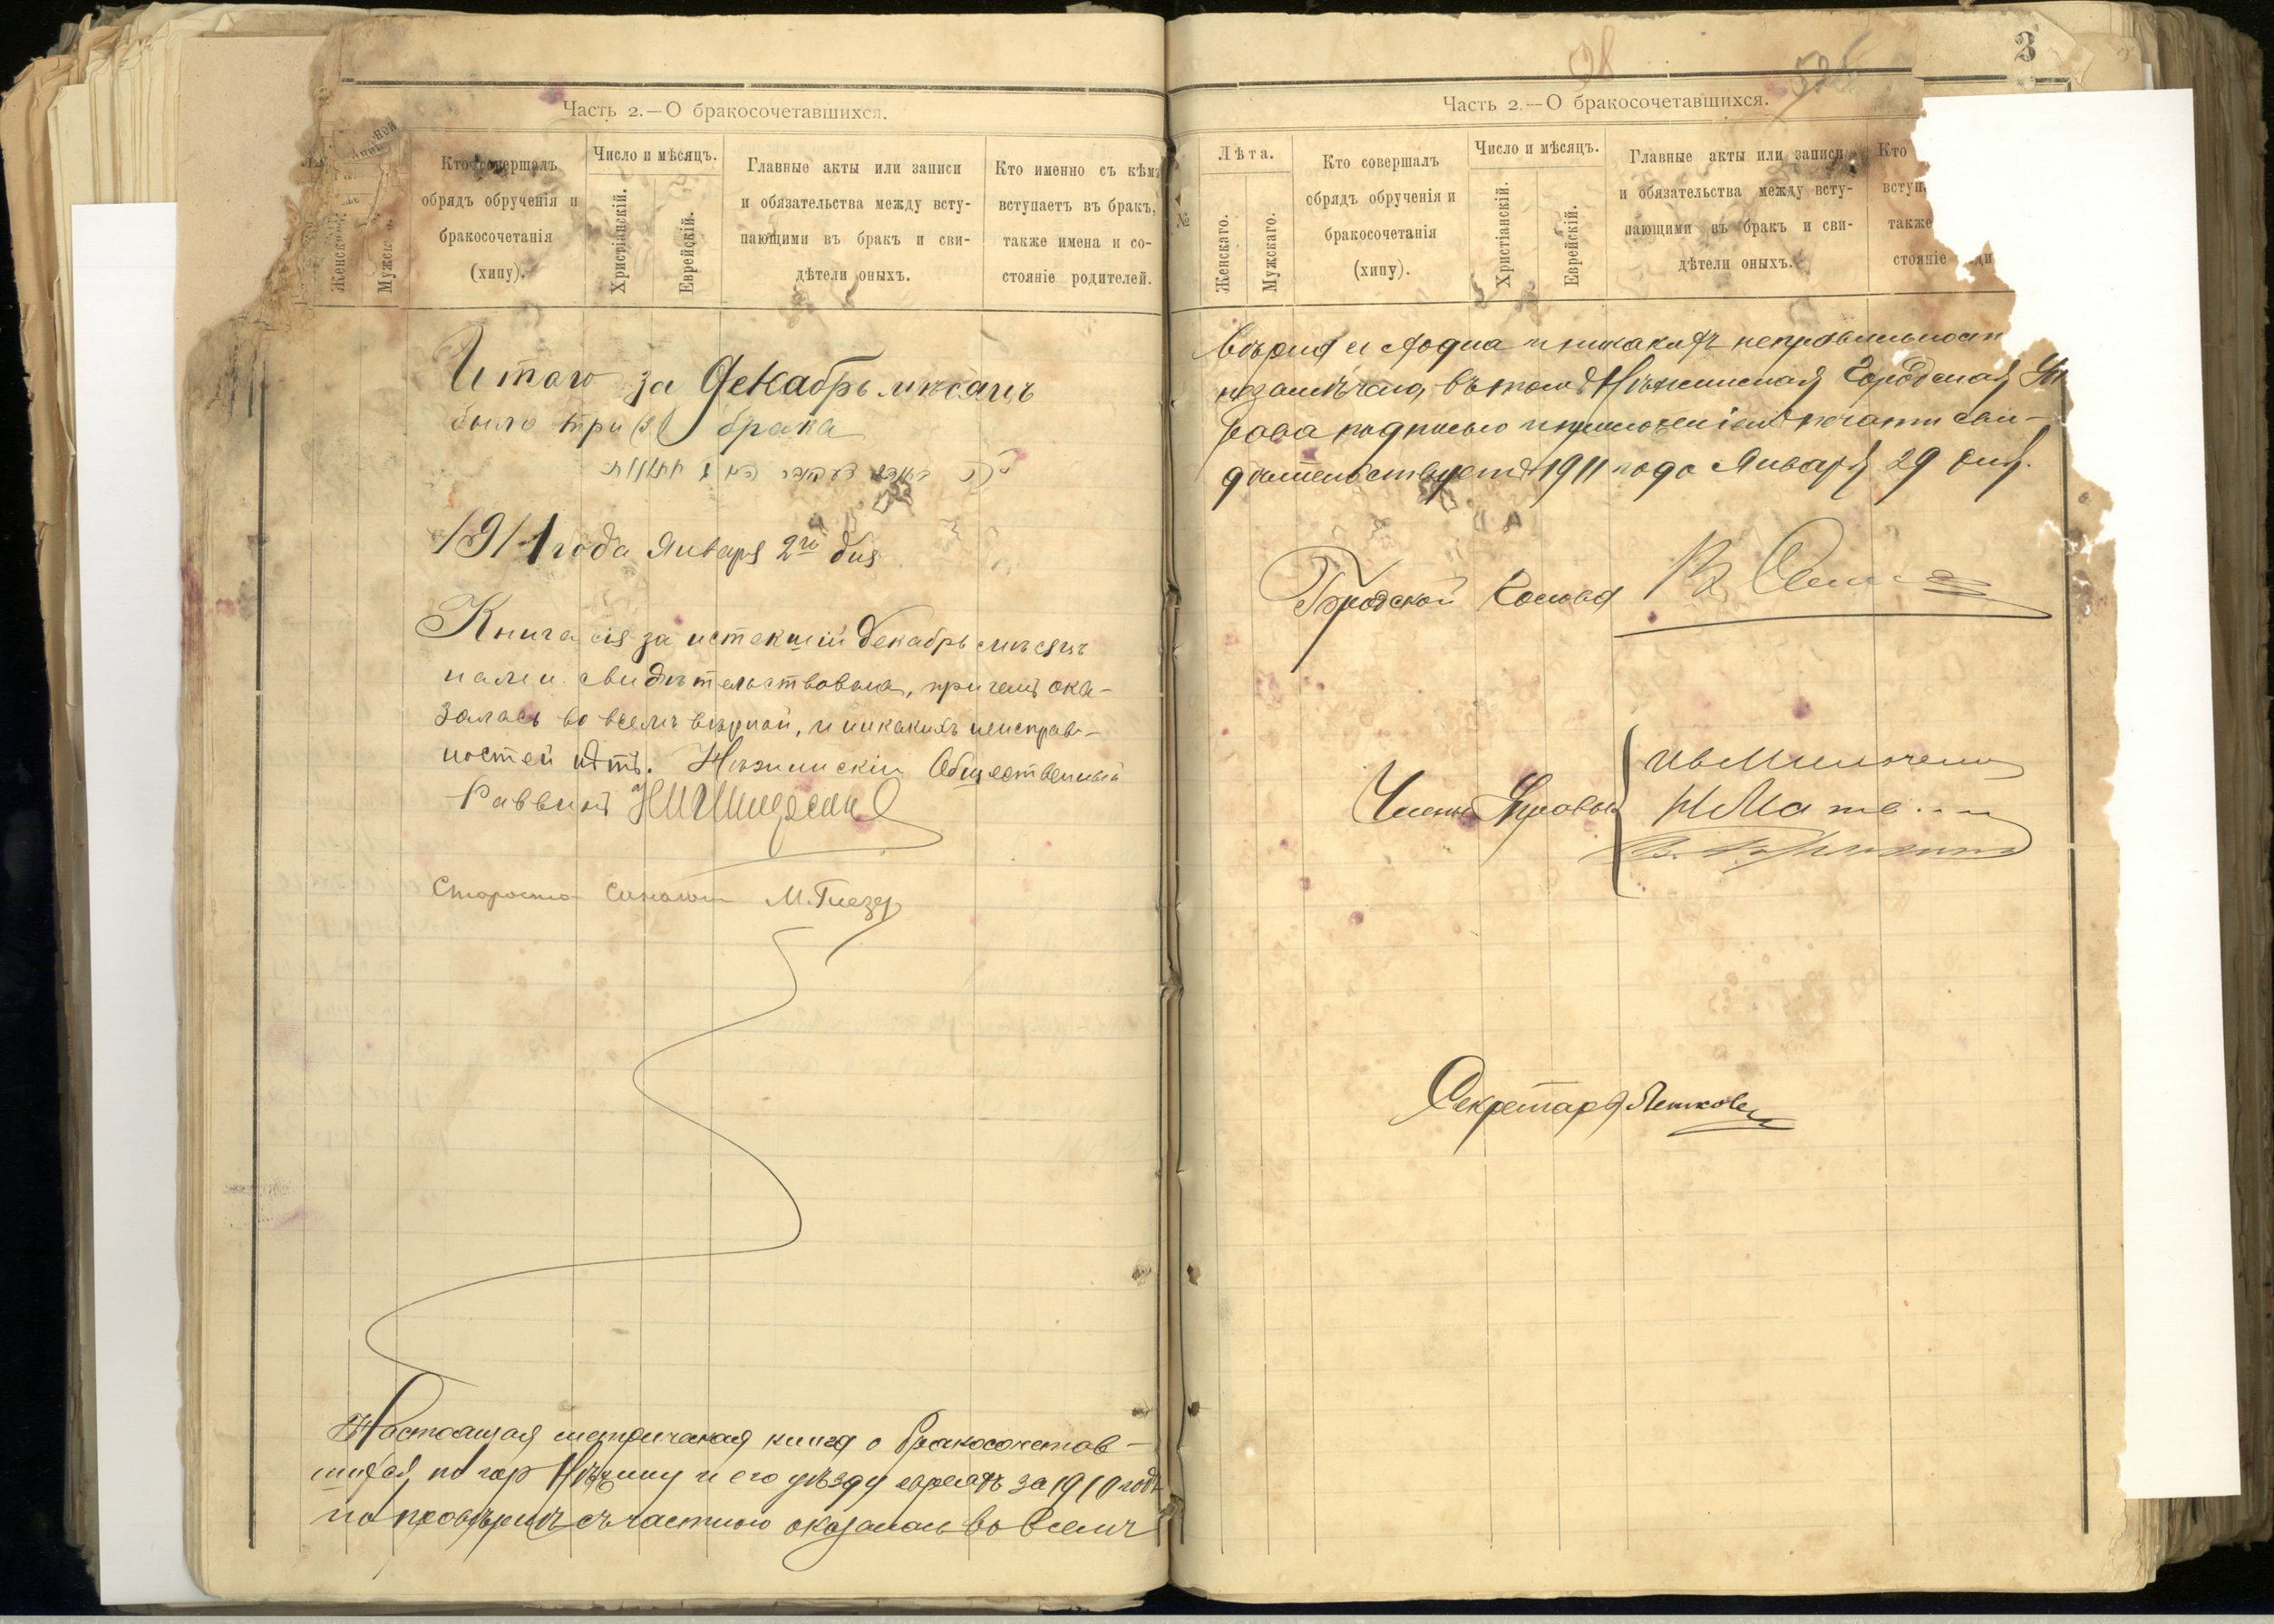 Часть 2.—О бракосочетавшихся.
Женскаго.
Мужск
Кто совершалъ
обрядъ обрученія и
бракосочетанія
(хипу).
Число и мѣсяцъ.
Христіанскій.
Еврейскій.
Главные акты или записи
и обязательства между всту-
пающими въ бракъ и сви-
дѣтели оныхъ.
Кто именно съ кѣмъ
вступаетъ въ бракъ,
также имена и со-
стояніе родителей.
Итого за Декабрь мѣсяцъ
было три (3) брака
1911 года Января 2го дня
Книга сія за истекшій декабрь мѣсяцъ
нами свидѣтельствована, причемъ ока-
залась во всемъ вѣрной, и никакихъ неисправ-
ностей нѣтъ. Нѣжинскій Общественный
Раввинъ
Староста М. Глезер
Настоящая метрическая книга о бракосочетав-
шихся по гор Нѣжину и его уѣзду евреяхъ за 1910 годъ
по повѣркѣ съ частною оказалась во всемъ
3
Часть 2.—О бракосочетавшихся.
№
Лѣта.
Женскаго.
Мужскаго.
Кто совершалъ
обрядъ обрученія и
бракосочетанія
(хипу).
Число и мѣсяцъ.
Христіанскій.
Еврейскій.
Главные акты или записи
и обязательства между всту-
пающими въ бракъ и сви-
дѣтели оныхъ.
Кто
вступ
также
стояніе ди
вѣрна и сходна и никакихъ неправильност
незамѣчено, въ томъ Нѣжинская Городская Уп
рава подписью и приложеніемъ печати сви-
дѣтельствуетъ 1911 года Января 29 дня.
Городской Голова
Члены Управы
Секретарь